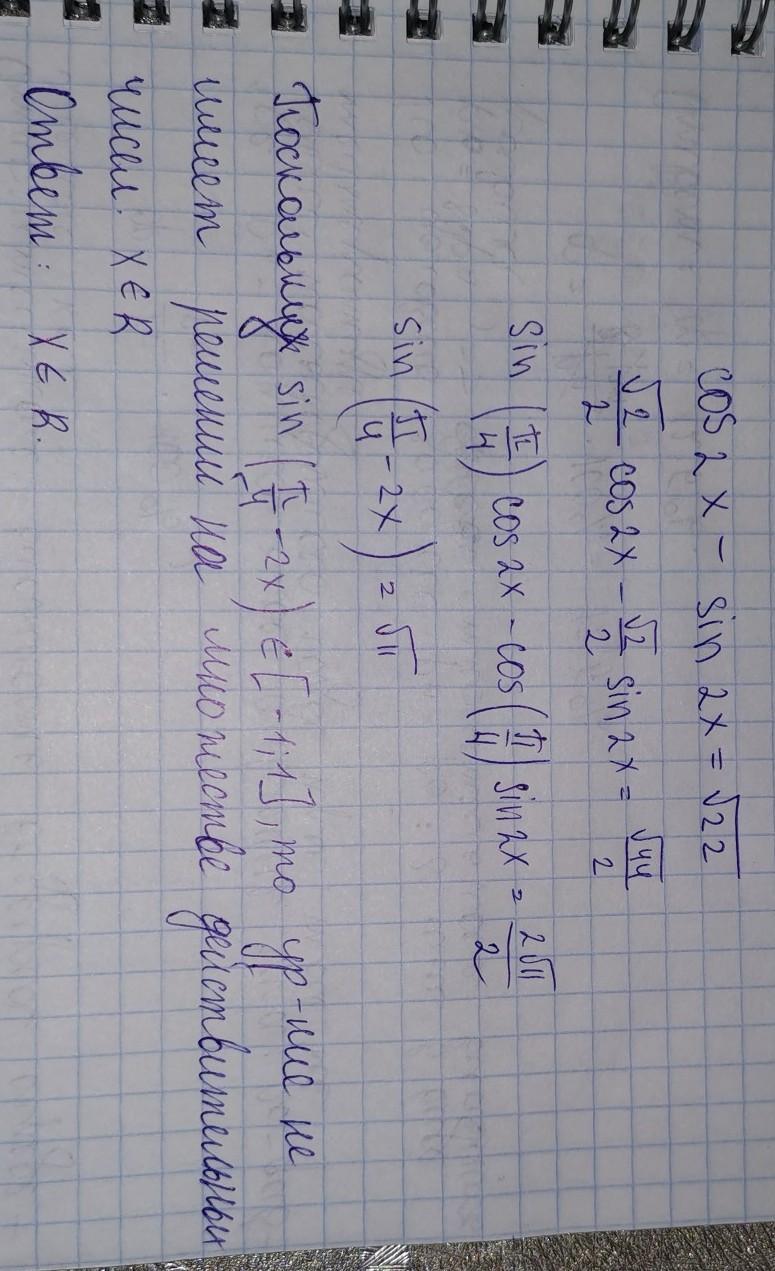 cos 2x - sin 2x = √22
√2/2 cos 2x - √2/2 sin 2x = √44/2
sin (π/4) cos 2x - cos (π/4) sin 2x = 2√11/2
sin (π/4 - 2x) = √11
Поскольку sin (π/4 - 2x) ∈ [-1; 1], то ур-ние не
имеет решений на множестве действительных
чисел. x ∈ R
Ответ: x ∈ R.